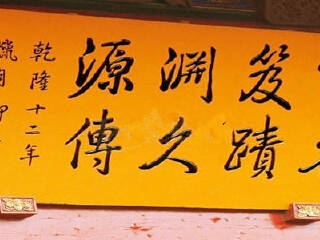 笈淵源
蹟久傳
乾隆十二年